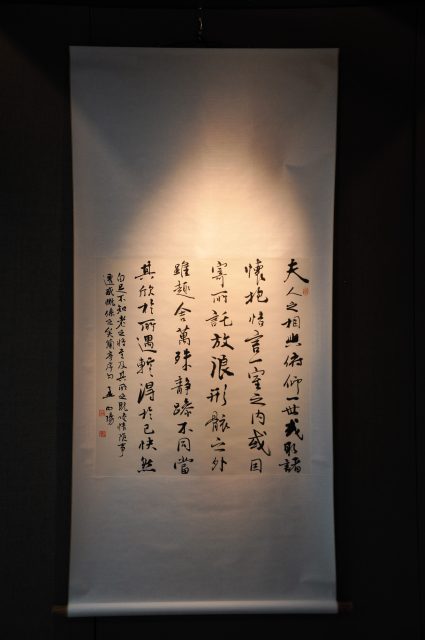 夫人之相與俯仰一世或取諸
懷抱悟言一室之內或因
寄所託放浪形骸之外
雖趣舍萬殊靜躁不同當
其欣於所遇暫得於己快然
自足不知老之將至及其所之既倦情隨事
遷感慨係之矣蘭亭序句